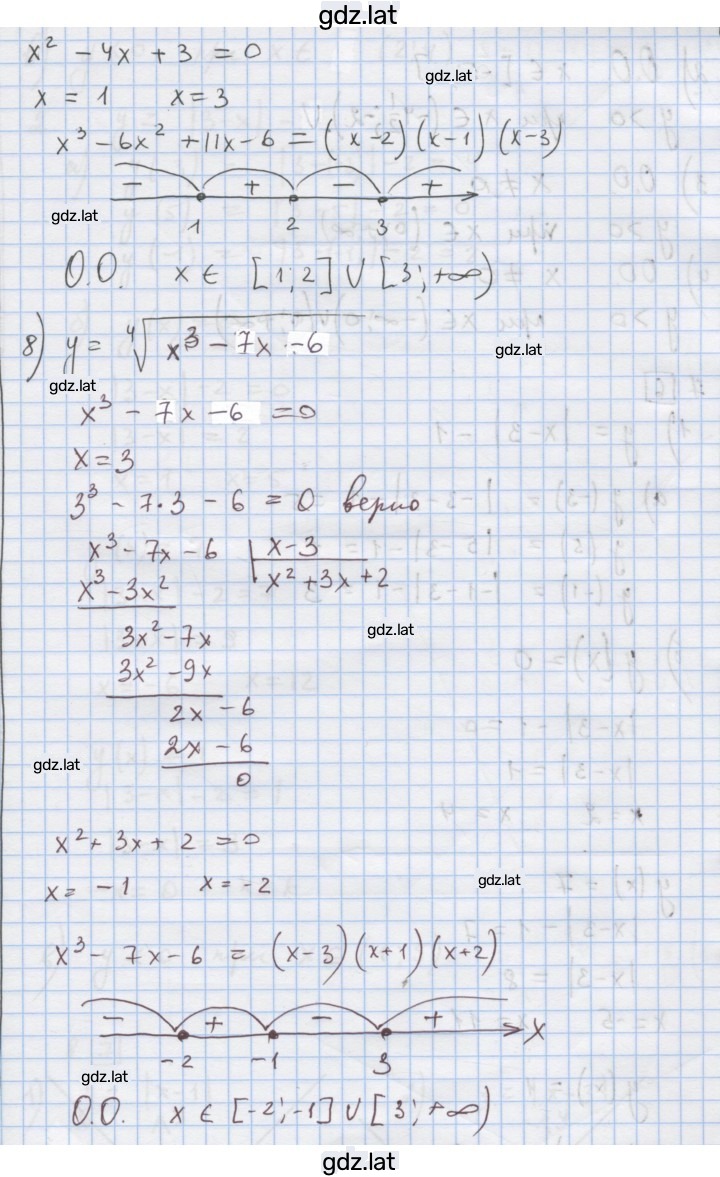 gdz.lat
x² - 4x + 3 = 0
gdz.lat
x = 1 x = 3
x³ - 6x² + 11x - 6 = (x-2)(x-1)(x-3)
- + - +
gdz.lat
1 2 3
О.О. x ∈ [1; 2] ∪ [3; +∞)
8) y = ⁴√(x³ - 7x - 6)
gdz.lat
gdz.lat
x³ - 7x - 6 = 0
x = 3
3³ - 7·3 - 6 = 0 верно
x³ - 7x - 6 | x - 3
x³ - 3x² | x² + 3x + 2
gdz.lat
3x² - 7x
3x² - 9x
2x - 6
2x - 6
gdz.lat
0
x² + 3x + 2 = 0
x = -1 x = -2
gdz.lat
x³ - 7x - 6 = (x-3)(x+1)(x+2)
- + - + x
-2 -1 3
gdz.lat
О.О. x ∈ [-2; -1] ∪ [3; +∞)
gdz.lat